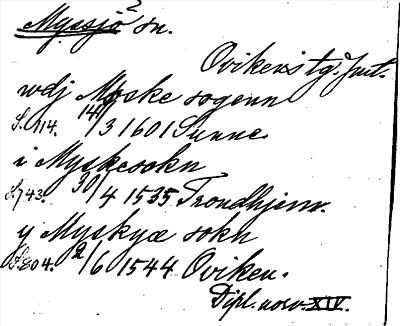 Myssjö 2 sn.
Ovikens tg. Jmt.
wdj Myske sogenn
S. 114. 14/3 1601 Sunne.
i Myskesokn
S. 743. 30/4 1535 Trondhjem.
y Myskyæ sokn
S. 804. 2/6 1544 Oviken.
Dipl. norv. XIV.